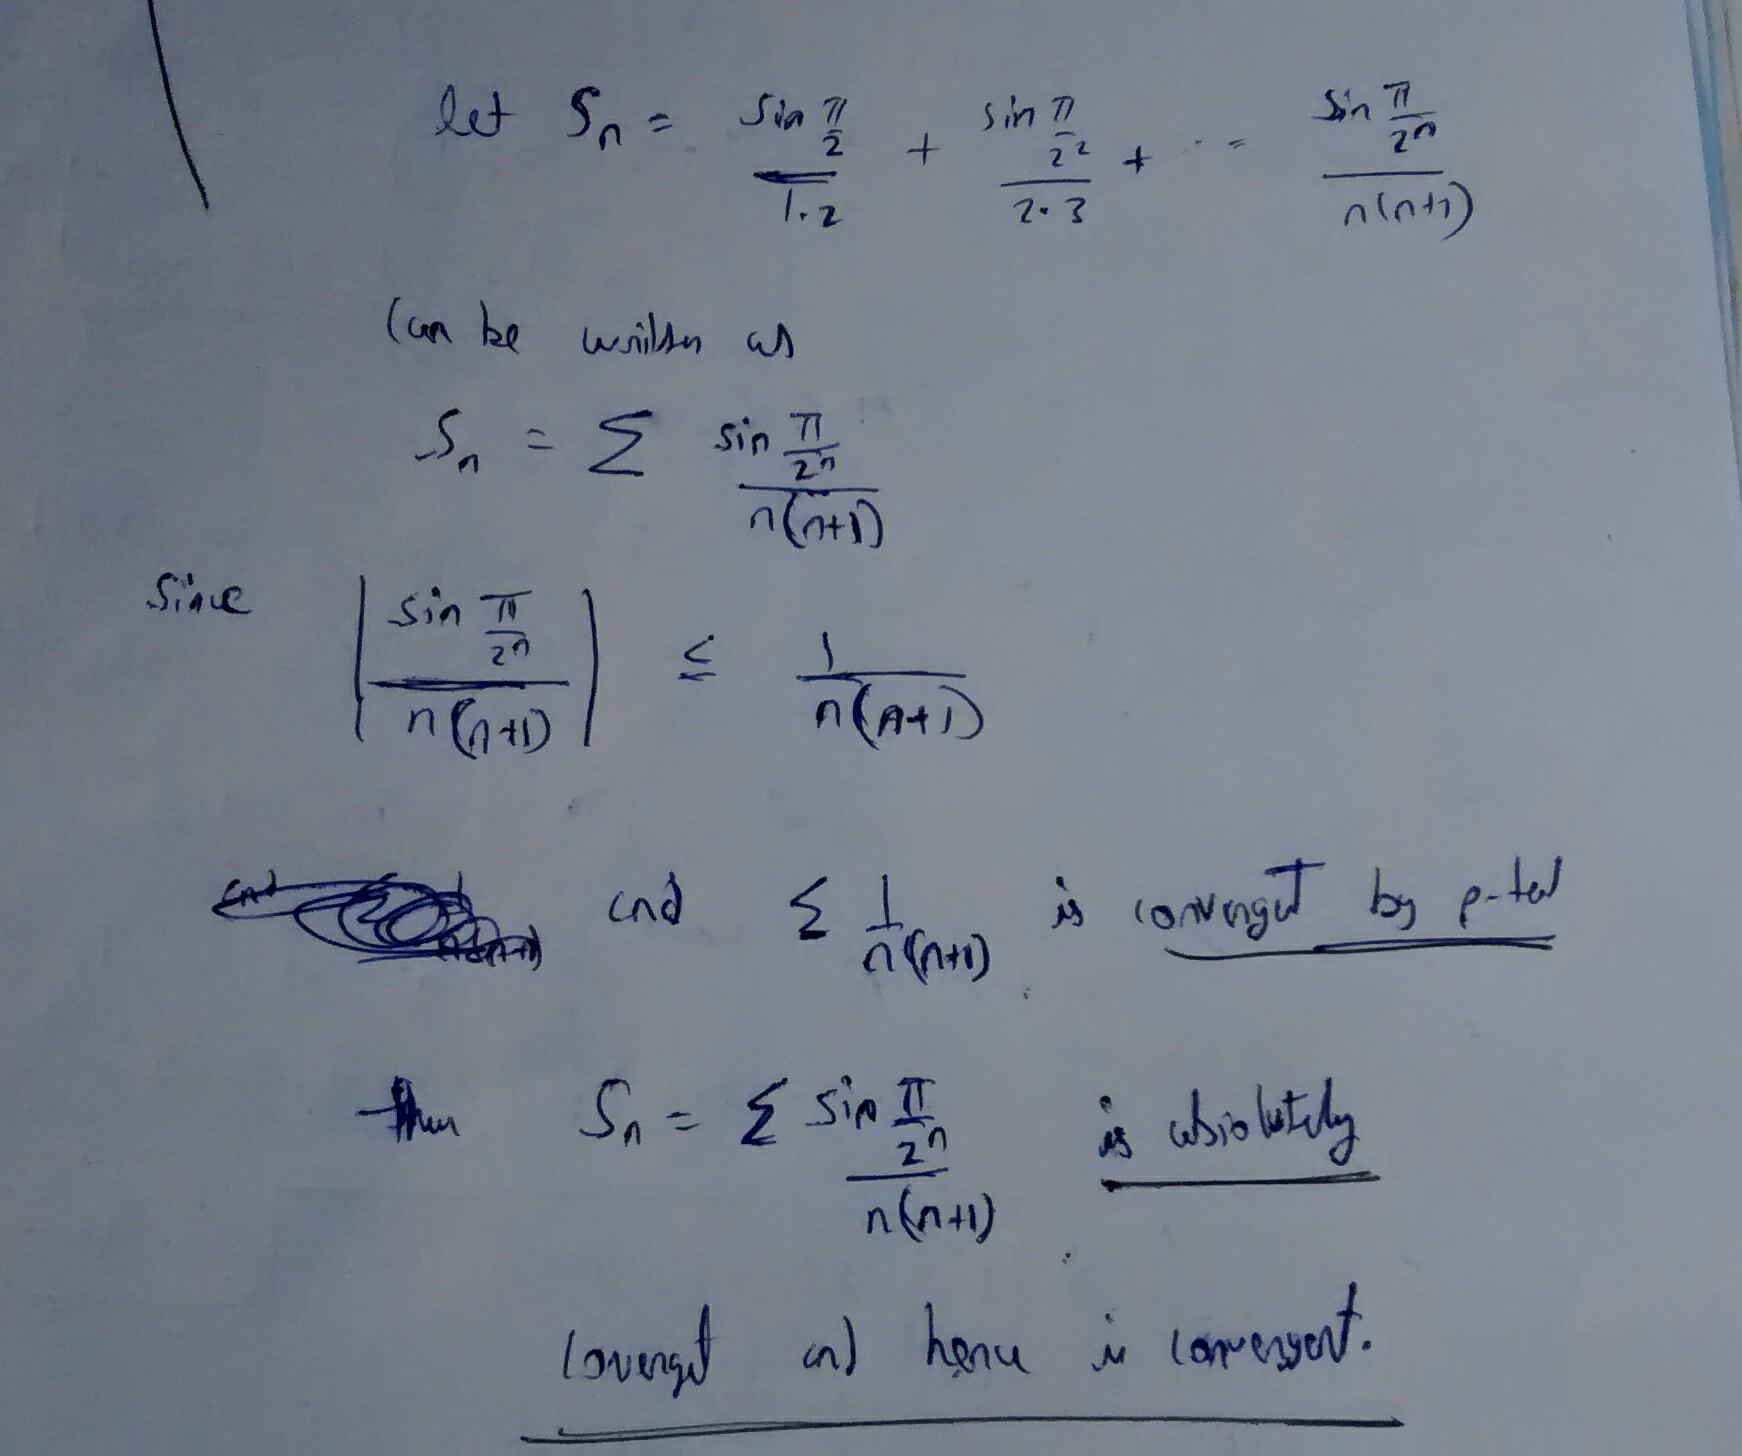 let Sn = sin π/2 / 1.2 + sin π/2² / 2.3 + .. = sin π/2ⁿ / n(n+1)
Can be written as
Sn = Σ sin π/2ⁿ / n(n+1)
Since | sin π/2ⁿ / n(n+1) | ≤ 1 / n(n+1)
and Σ 1 / n(n+1) is convergent by p-test
then Sn = Σ sin π/2ⁿ / n(n+1) is absiolutely
covergent and hence is convergent.